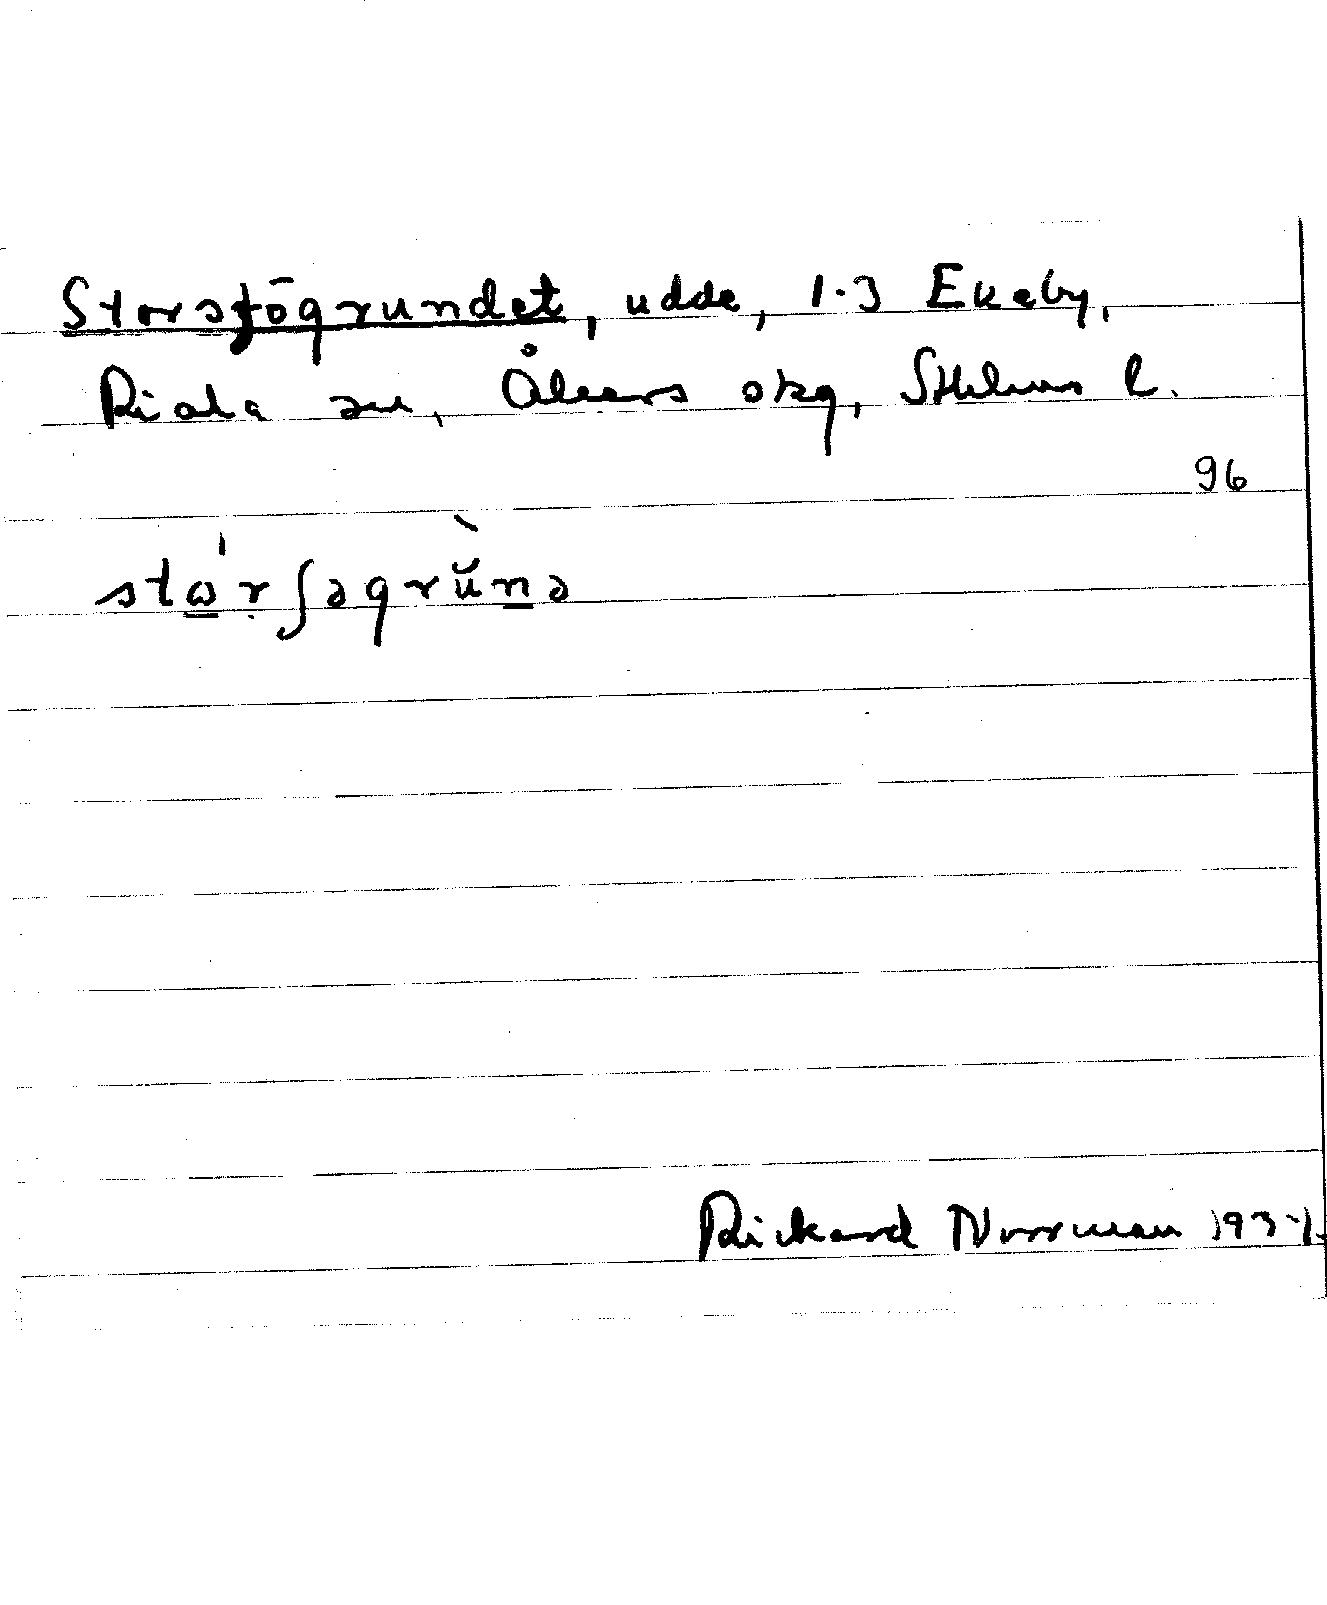 Storsjögrundet, udde, 1.3 Ekeby,
Riala sn, Åkers skg, Sthlms l.
96
Rickard Norrman